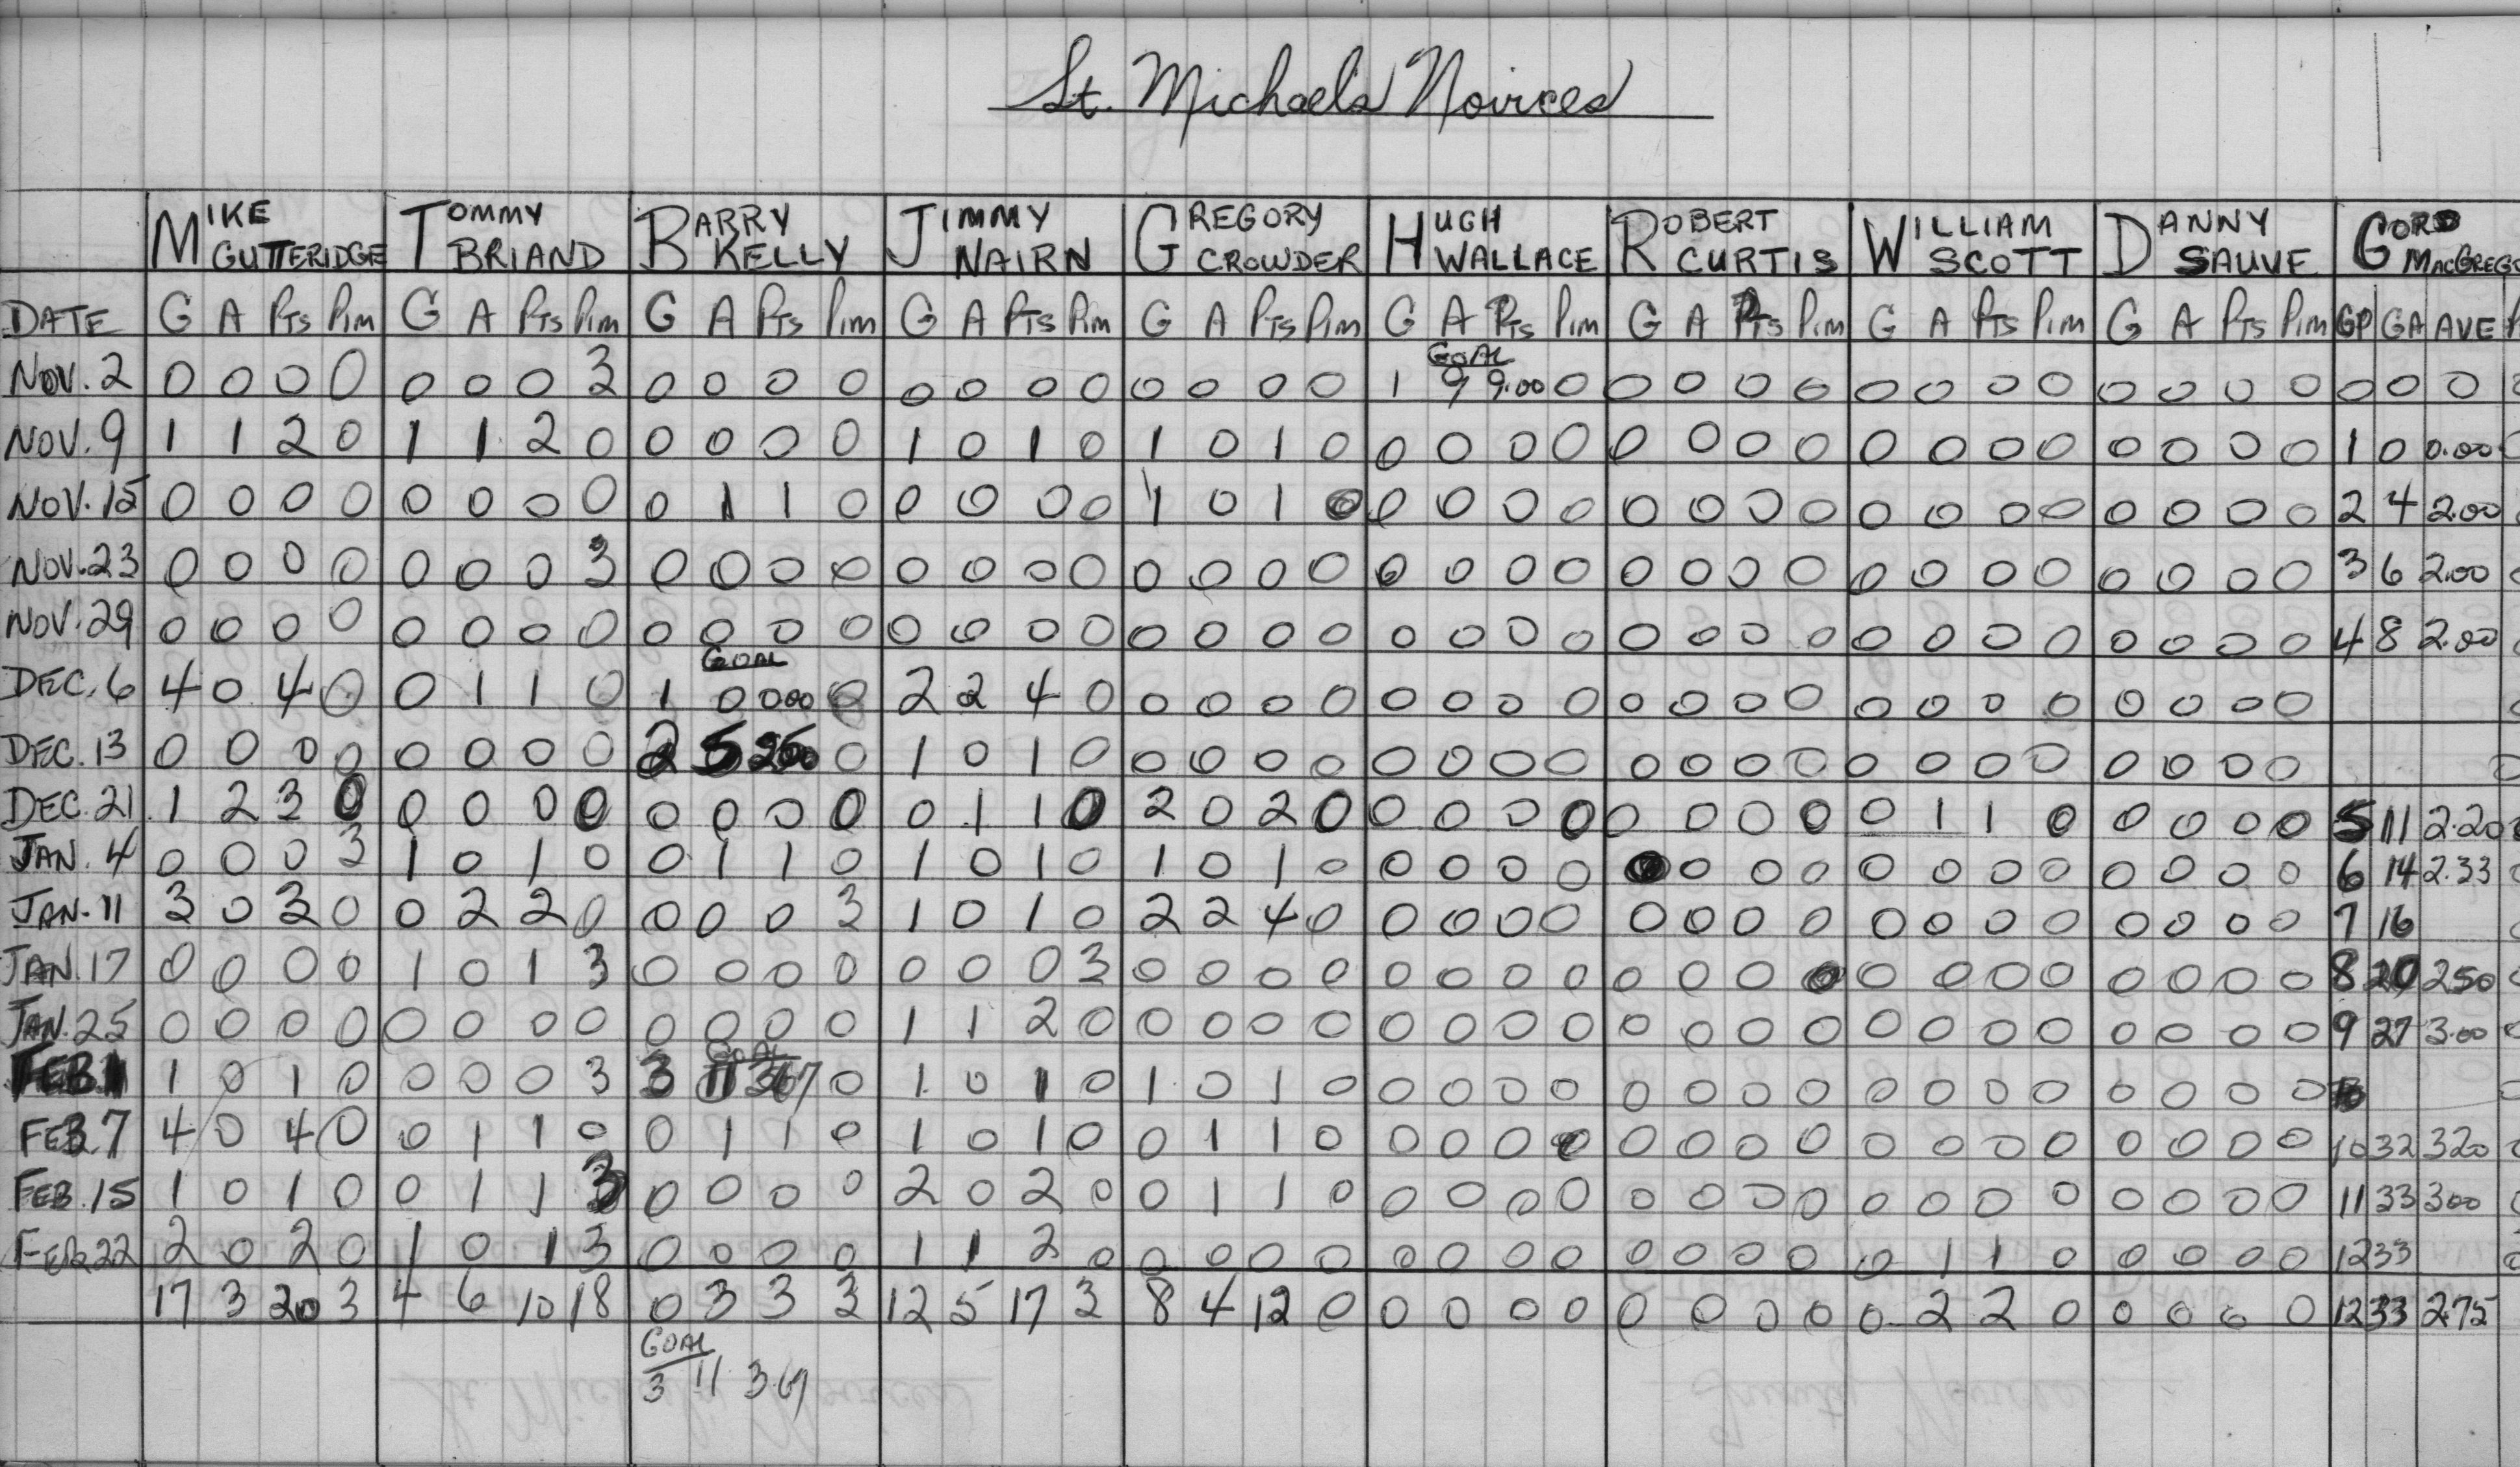 St. Michaels Novices
MIKE GUTTERIDGE TOMMY BRIAND BARRY KELLY JIMMY NAIRN GREGORY CROWDER HUGH WALLACE ROBERT CURTIS WILLIAM SCOTT DANNY SAUVE GORD MACGREG
DATE G A Pts Pim G A Pts Pim G A Pts Pim G A Pts Pim G A Pts Pim G A Pts Pim G A Pts Pim G A Pts Pim G A Pts Pim GP GA AVE
GOAL
NOV. 2 0 0 0 0 0 0 0 3 0 0 0 0 0 0 0 0 0 0 0 0 1 9 9.00 0 0 0 0 0 0 0 0 0 0 0 0 0 0 0 0
NOV. 9 1 1 2 0 1 1 2 0 0 0 0 0 1 0 1 0 1 0 1 0 0 0 0 0 0 0 0 0 0 0 0 0 0 0 0 0 1 0 0.00
NOV. 15 0 0 0 0 0 0 0 0 0 1 1 0 0 0 0 0 1 0 1 0 0 0 0 0 0 0 0 0 0 0 0 0 0 0 0 0 2 4 2.00
NOV. 23 0 0 0 0 0 0 0 3 0 0 0 0 0 0 0 0 0 0 0 0 0 0 0 0 0 0 0 0 0 0 0 0 0 0 0 0 3 6 2.00
NOV. 29 0 0 0 0 0 0 0 0 0 0 0 0 0 0 0 0 0 0 0 0 0 0 0 0 0 0 0 0 0 0 0 0 0 0 0 0 4 8 2.00
GOAL
DEC. 6 4 0 4 0 0 1 1 0 1 0 000 0 2 2 4 0 0 0 0 0 0 0 0 0 0 0 0 0 0 0 0 0 0 0 0 0
DEC. 13 0 0 0 0 0 0 0 0 2 5 250 0 1 0 1 0 0 0 0 0 0 0 0 0 0 0 0 0 0 0 0 0 0 0 0 0
DEC. 21 1 2 3 0 0 0 0 0 0 0 0 0 0 1 1 0 2 0 2 0 0 0 0 0 0 0 0 0 0 1 1 0 0 0 0 0 5 11 2.20
JAN. 4 0 0 0 3 1 0 1 0 0 1 1 0 1 0 1 0 1 0 1 0 0 0 0 0 0 0 0 0 0 0 0 0 0 0 0 0 6 14 2.33
JAN. 11 3 0 3 0 0 2 2 0 0 0 0 3 1 0 1 0 2 2 4 0 0 0 0 0 0 0 0 0 0 0 0 0 0 0 0 0 7 16
JAN. 17 0 0 0 0 1 0 1 3 0 0 0 0 0 0 0 3 0 0 0 0 0 0 0 0 0 0 0 0 0 0 0 0 0 0 0 0 8 20 250
JAN. 25 0 0 0 0 0 0 0 0 0 0 0 0 1 1 2 0 0 0 0 0 0 0 0 0 0 0 0 0 0 0 0 0 0 0 0 0 9 27 3.00
GOAL
FEB. 1 1 0 1 0 0 0 0 3 3 11 367 0 1 0 1 0 1 0 1 0 0 0 0 0 0 0 0 0 0 0 0 0 0 0 0 0
FEB. 7 4 0 4 0 0 1 1 0 0 1 1 0 1 0 1 0 0 1 1 0 0 0 0 0 0 0 0 0 0 0 0 0 0 0 0 0 10 32 320
FEB. 15 1 0 1 0 0 1 1 3 0 0 0 0 2 0 2 0 0 1 1 0 0 0 0 0 0 0 0 0 0 0 0 0 0 0 0 0 11 33 300
FEB 22 2 0 2 0 1 0 1 3 0 0 0 0 1 1 2 0 0 0 0 0 0 0 0 0 0 0 0 0 0 1 1 0 0 0 0 0 12 33
17 3 20 3 4 6 10 18 0 3 3 3 12 5 17 3 8 4 12 0 0 0 0 0 0 0 0 0 0 2 2 0 0 0 0 0 12 33 2.75
GOAL
3 11 3.67